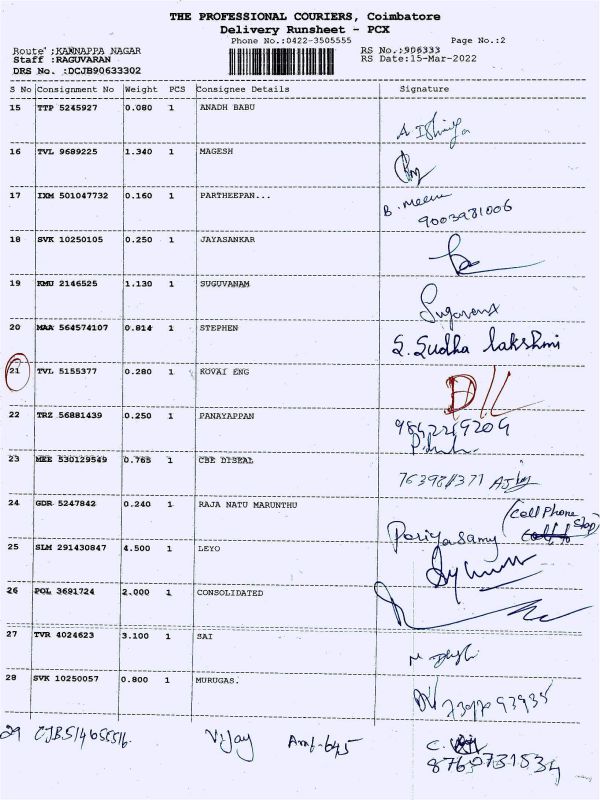 THE PROFESSIONAL COURIERS, Coimbatore
Delivery Runsheet - PCX
Phone No.:0422-3505555 Page No.:2
Route :KANNAPPA NAGAR RS No.:906333
Staff :RAGUVARAN RS Date:15-Mar-2022
DRS No. :DCJB90633302
S No Consignment No Weight PCS Consignee Details Signature
15 TTP 5245927 0.080 1 ANADH BABU
16 TVL 9689225 1.340 1 MAGESH
17 IXM 501047732 0.160 1 PARTHEEPAN... B. Meena
9003981006
18 SVK 10250105 0.250 1 JAYASANKAR
19 KMU 2146525 1.130 1 SUGUVANAM
20 MAA 564574107 0.814 1 STEPHEN S. Sudha lakshmi
21 TVL 5155377 0.280 1 KOVAI ENG D/L
22 TRZ 56881439 0.250 1 PANAYAPPAN
23 MEE 530129549 0.765 1 CBE DISEAL
24 GDR 5247842 0.240 1 RAJA NATU MARUNTHU (Cell Phone Shop)
Periyasamy
25 SLM 291430847 4.500 1 LEYO
26 POL 3691724 2.000 1 CONSOLIDATED
27 TVR 4024623 3.100 1 SAI
28 SVK 10250057 0.800 1 MURUGAS.
29 Vijay Amt-645